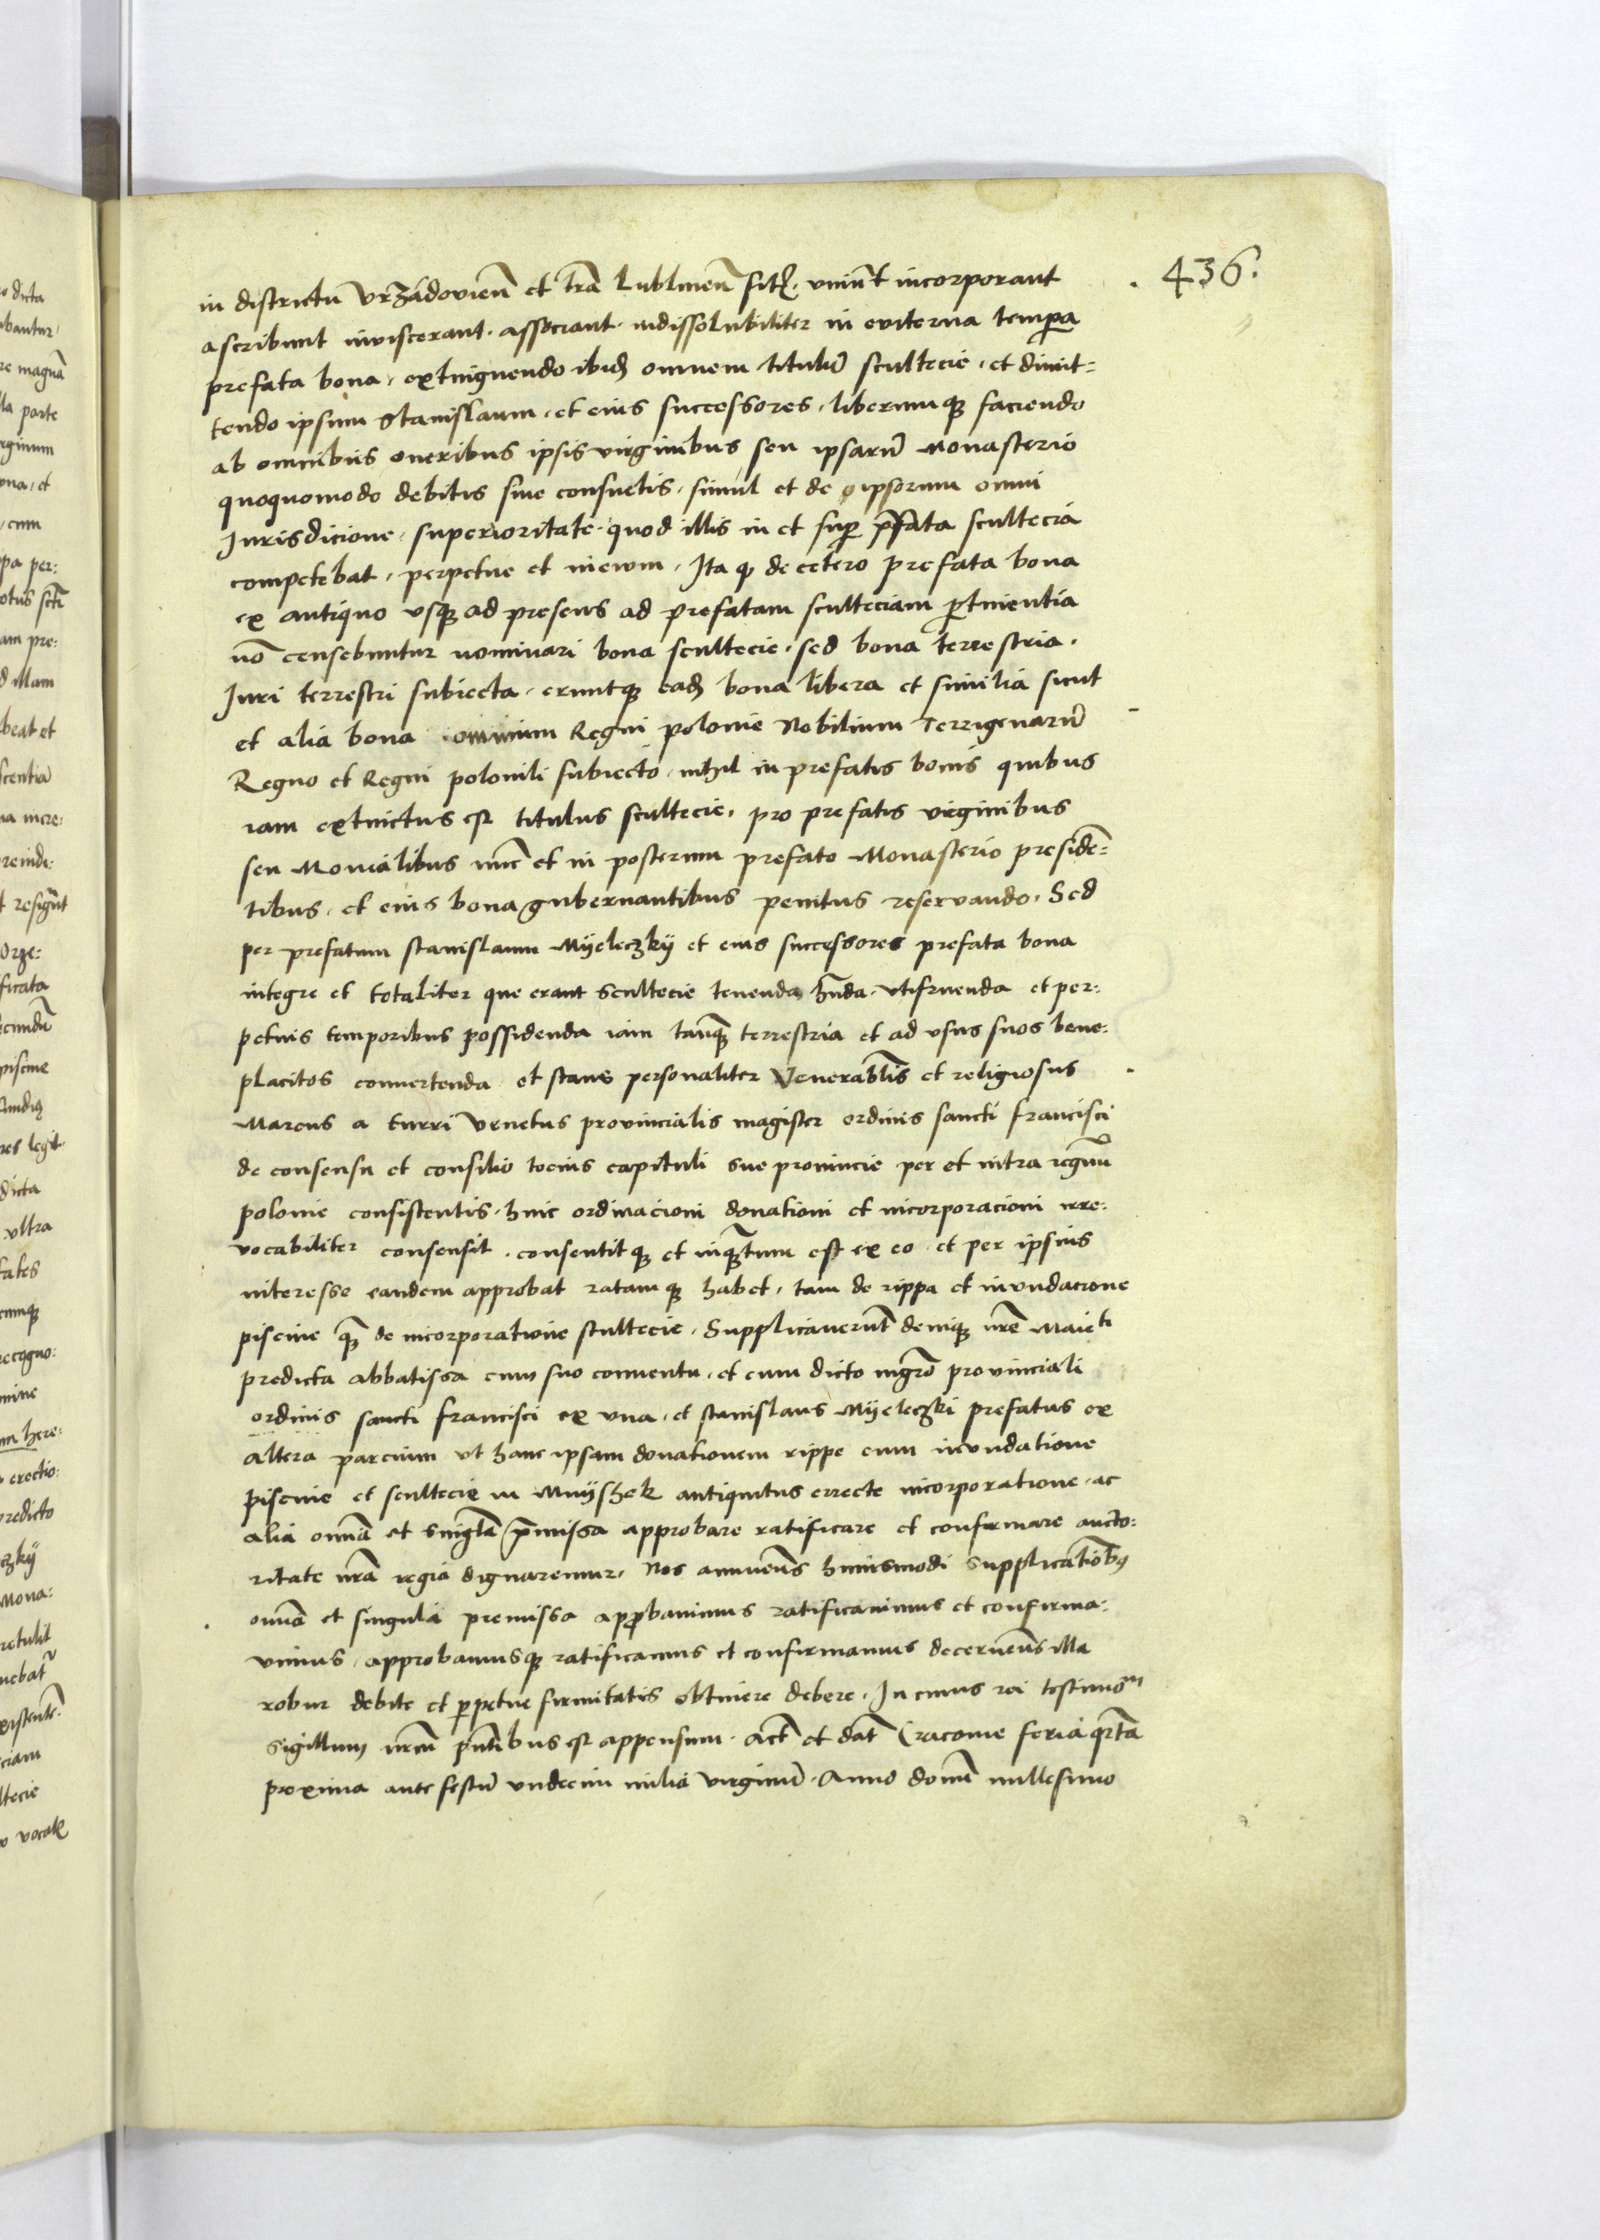 436.
in districtu Vrzadovien̄ et tr̄a Lublinen̄ sit. vniūt incorporant
ascribunt inviscerant. associant. indissolubiliter in eviterna tempora
prefata bona, extinguendo ibid omnem titulū scultecie. et dimit-
tendo ipsum Stanislaum. et eius successores, liberumq faciendo
ab omnibus oneribus ipsis virginibus seu ipsarū Monasterio
quoquomodo debitis siue consuetis. simul et de ipsorum omni
Jurisdicione, superioritate. quod illis in et sup p̄fata scultecia
competebat, perpetue et in ewm. Ita q de cetero prefata bona
ex antiquo vsq ad presens ad prefatam sculteciam ptinentia
nō censebuntur nominari bona scultecie, sed bona terrestria.
Juri terrestri subiecta. eruntq ead bona libera et similia sicut
et alia bona omnium Regni polonie Nobilium Terrigenarū
Regno et Regni polonili subiecto, nihil in prefatis bonis quibus
iam extinctus est titulus scultecie, pro prefatis virginibus
seu Monialibus nūc et in posterum prefato Monasterio presidē-
tibus, et eius bona gubernantibus penitus reservando. Sed
per prefatum stanislaum Myeleczky et eius successores prefata bona
integre et totaliter que erant scultecie tenenda hn̄da. vtifruenda et per-
petuis temporibus possidenda iam tanq̄ terrestria et ad vsus suos bene-
placitos convertenda et stans personaliter Venerablis et religiosus
Marcus a turri Venetus provincialis magister ordinis sancti francisci
de consensu et consilio tocius capituli sue provincie per et intra regnū
polonie consistentis. huic ordinacioni donationi et incorporacioni irre-
vocabiliter consensit. consentitq et inq̄tum est ex eo et per ipsius
interesse eandem approbat ratamq habet, tam de rippa et invndacione
piscine q̄ de incorporatione scultecie. Supplicaverūt deniq nr̄e Maieti
predicta abbatissa cum suo conventu. et cum dicto mgr̄o provinciali
ordinis sancti francisci ex vna. et stanislaus Myeleczki prefatus ex
altera parcium vt hanc ipsam donationem rippe cum invndatione
piscine et scultecie in Mnyshek antiquitus errecte incorporatione. ac
alia omīa et singla p̄missa approbare ratificare et confirmare aucto-
ritate nr̄a regia dignaremur. Nos annuen̄s huiusmodi supplicationibꝰ
omīa et singula premissa approbavimus ratificavimus et confirma-
vimus, approbamusq ratificamus et confirmamus decernen̄s illa
robur debite et ppetue firmitatis obtinere debere. In cuius rei testimom
sigillum nrūm pn̄tibus est appensum. Act et dat Cracovie feria q̄rta
proxima ante festū vndecim milia virginū. Anno domī millesimo